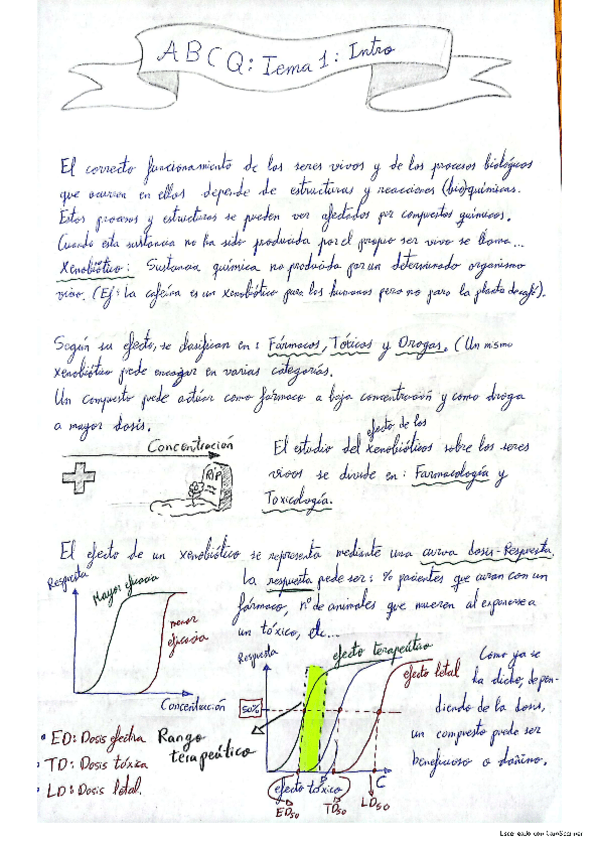 ABCQ: Tema 1: Intro
El correcto funcionamiento de los seres vivos y de los procesos biológicos
que ocurren en ellos depende de estructuras y reacciones (bio)químicas.
Estos procesos y estructuras se pueden ver afectados por compuestos químicos.
Cuando esta sustancia no ha sido producida por el propio ser vivo se llama...
Xenobiótico: Sustancia química no producida por un determinado organismo
vivo. (Ej: La cafeína es un xenobiótico para los humanos pero no para la planta de café).
Según su efecto, se clasifican en: Fármacos, Tóxicos y Drogas. (Un mismo
xenobiótico puede encajar en varias categorías.
Un compuesto puede actuar como fármaco a baja concentración y como droga
a mayor dosis.
Concentración
RIP
efecto de los
El estudio del xenobióticos sobre los seres
vivos se divide en: Farmacología y
Toxicología.
El efecto de un xenobiótico se representa mediante una curva dosis-Respuesta
Respuesta
Mayor eficacia
menor
eficacia
Concentración
La respuesta puede ser: % pacientes que curan con un
fármaco, nº de animales que mueren al exponerse a
un tóxico, etc...
Respuesta
efecto terapéutico
efecto letal
50%
Rango
terapéutico
efecto tóxico
C
ED50
TD50
LD50
Como ya se
ha dicho, depen-
diendo de la dosis,
un compuesto puede ser
beneficioso o dañino.
• ED: Dosis efectiva
• TD: Dosis tóxica
• LD: Dosis letal.
Escaneado con CamScanner